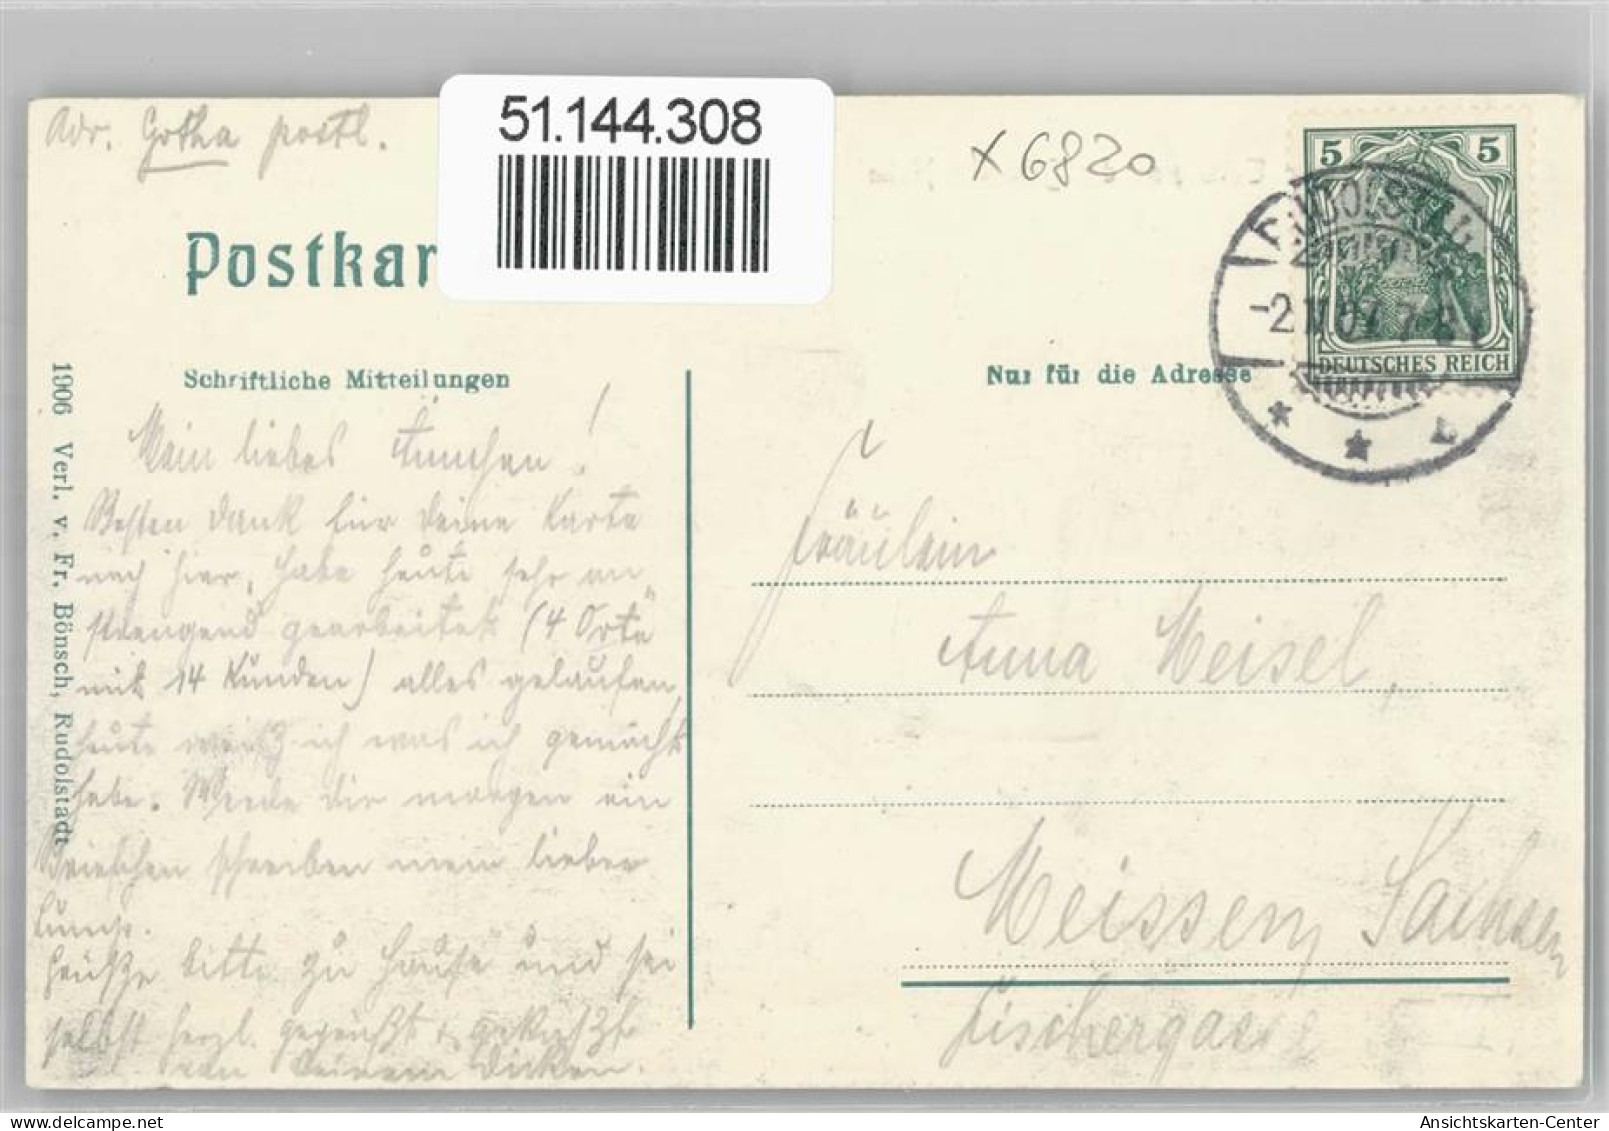 Adr. Gotha postl.
51.144.308
x 6820
Postkar
Schriftliche Mitteilungen
Nur für die Adresse
5 5
DEUTSCHES REICH
RUDOLSTADT
-2.11.07.7-8
1906 Verl. v. Fr. Bönsch, Rudolstadt
Mein liebes Annchen!
Besten Dank für Deine Karte
nach hier, habe heute sehr an„
strengend gearbeitet (4 Orte
mit 14 Kunden) alles gelaufen,
heute weiß ich was ich gemacht
habe. Werde Dir morgen ein
Briefchen schreiben mein lieber
Grüsze bitte zu Hause und sei
selbst herzl. gegrüßt & geküszt
von Deinem Dicken.
Fräulein
Anna Meisel,
Meissen, Sachsen
Fischergasse
Ansichtskarten-Center